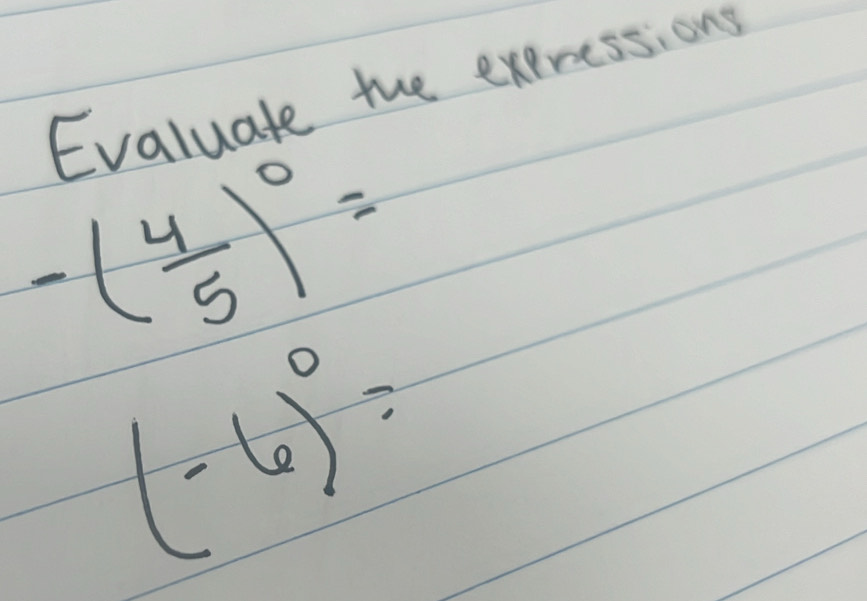 Evaluate the expressions
-(4/5)^0 =
(-6)^0 =